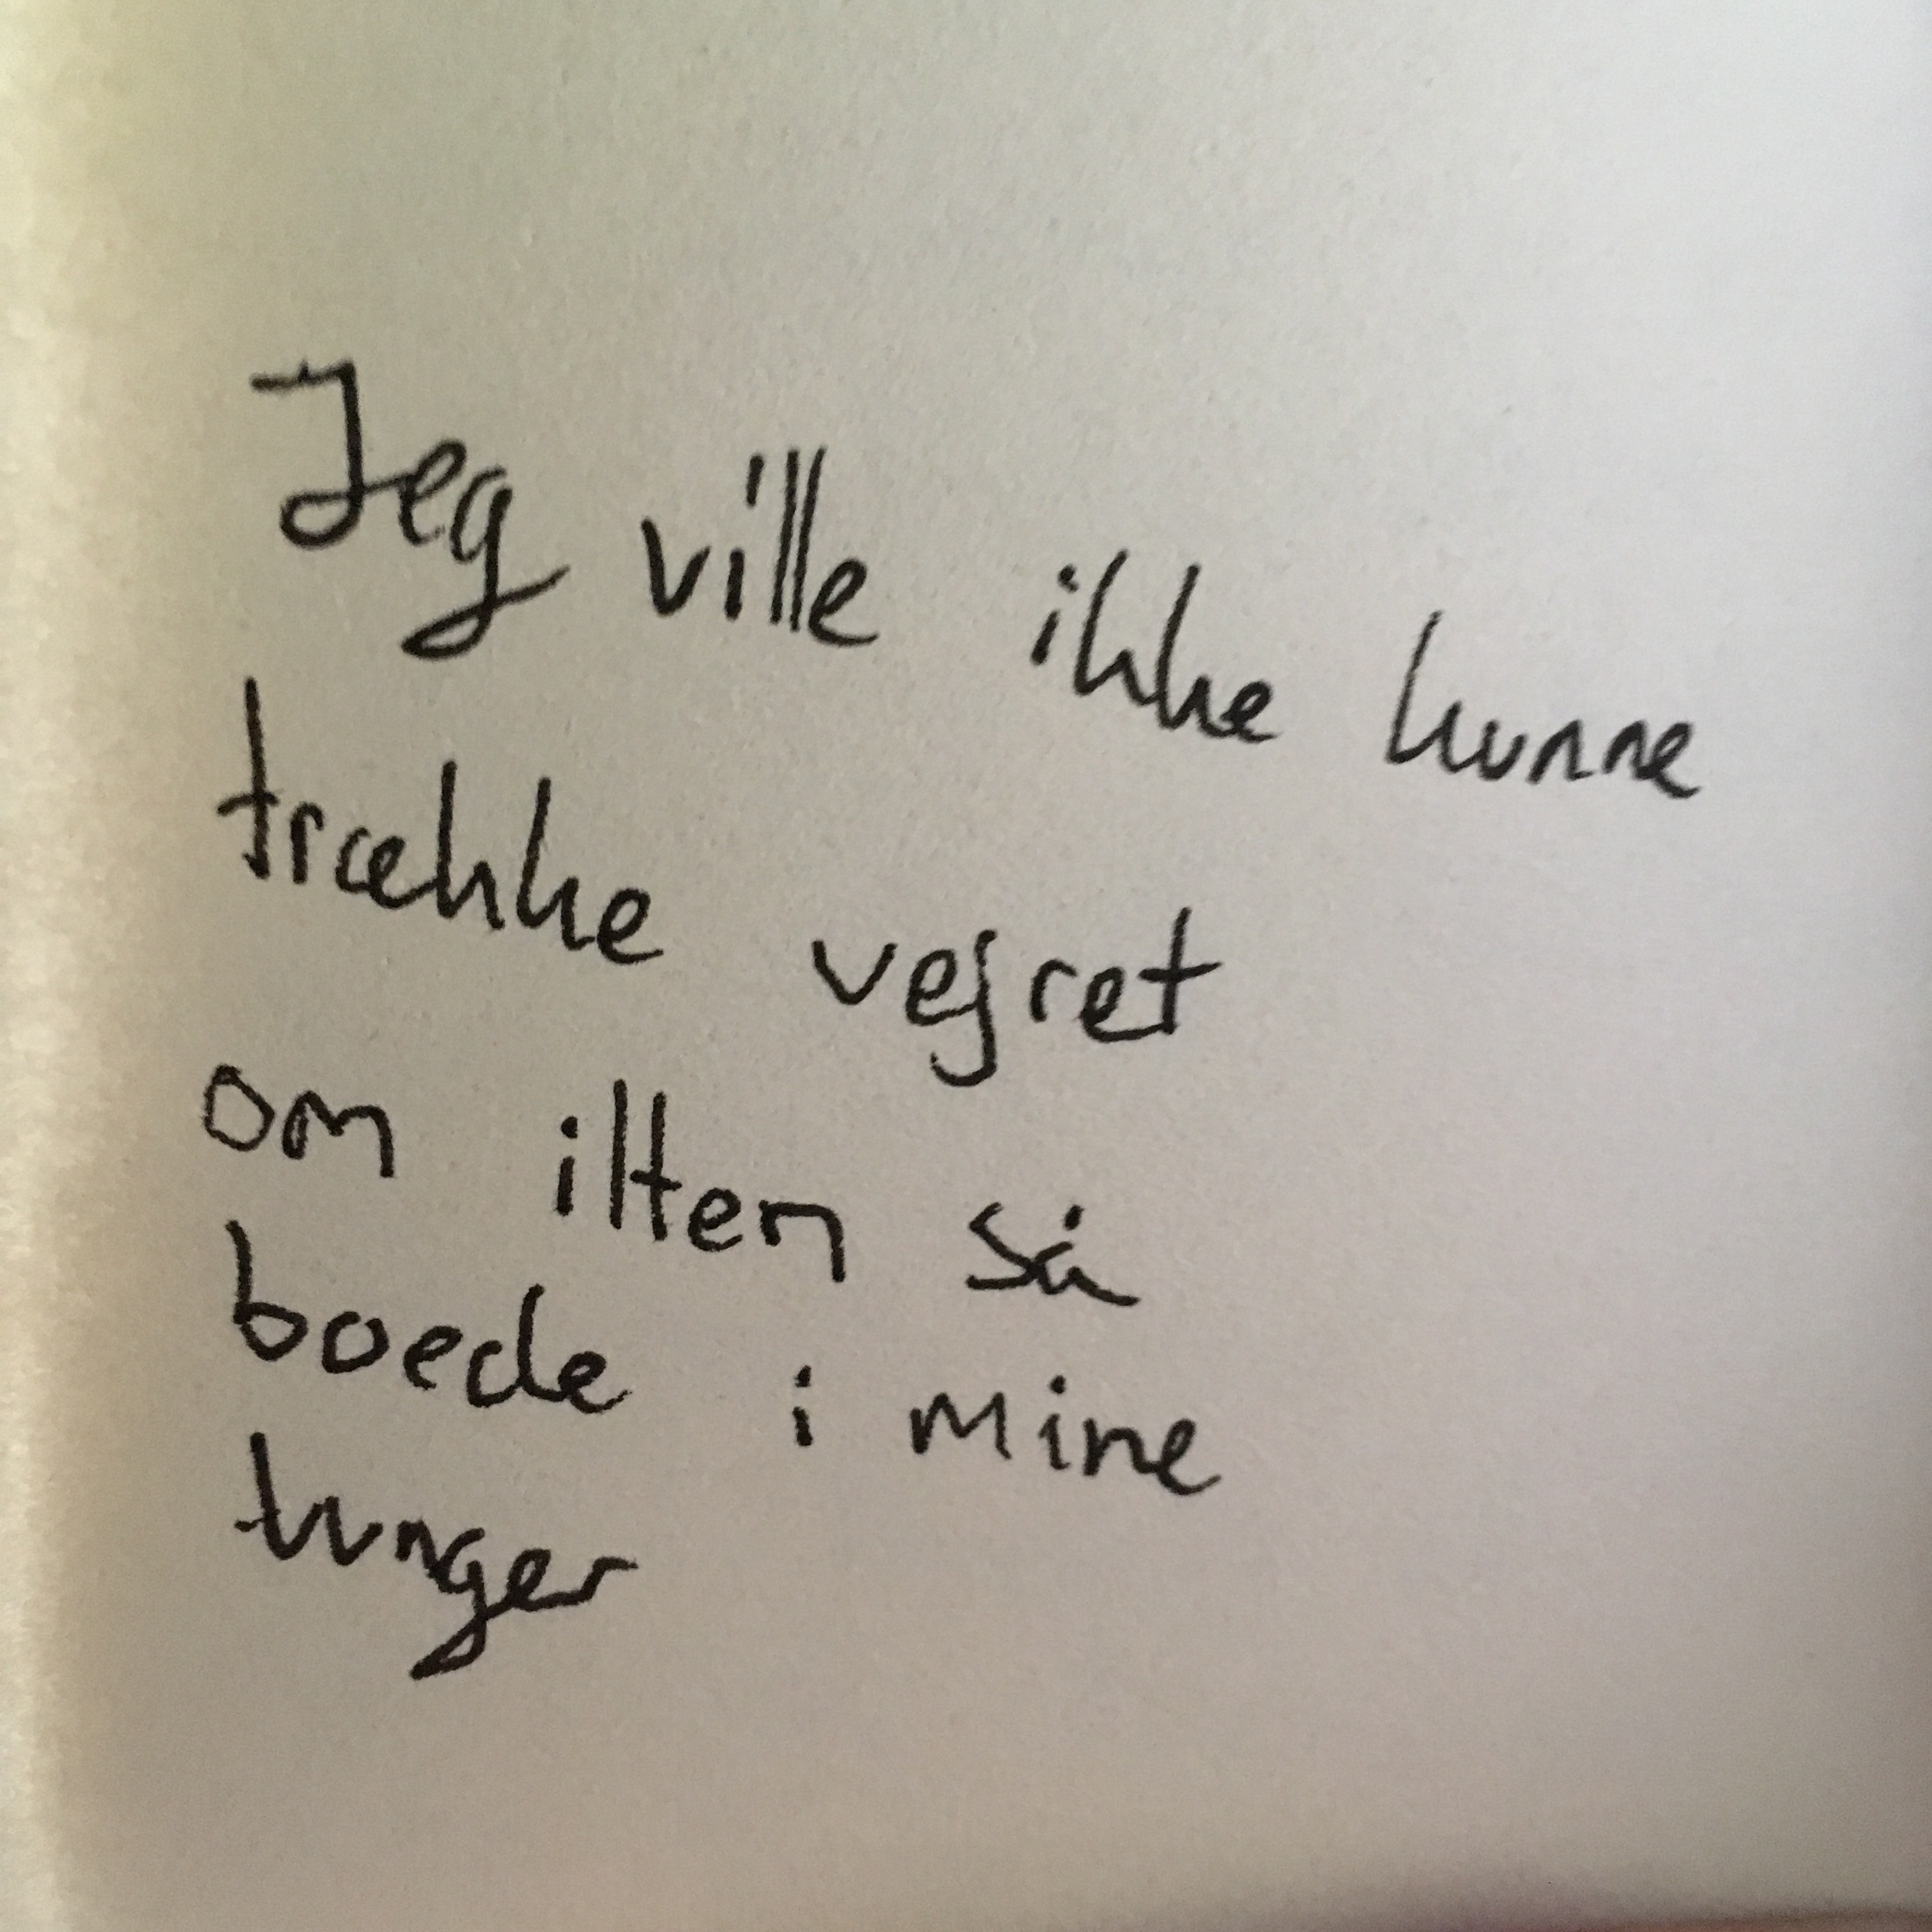 Jeg ville ikke kunne
trække vejret
om ilten så
boede i mine
lunger